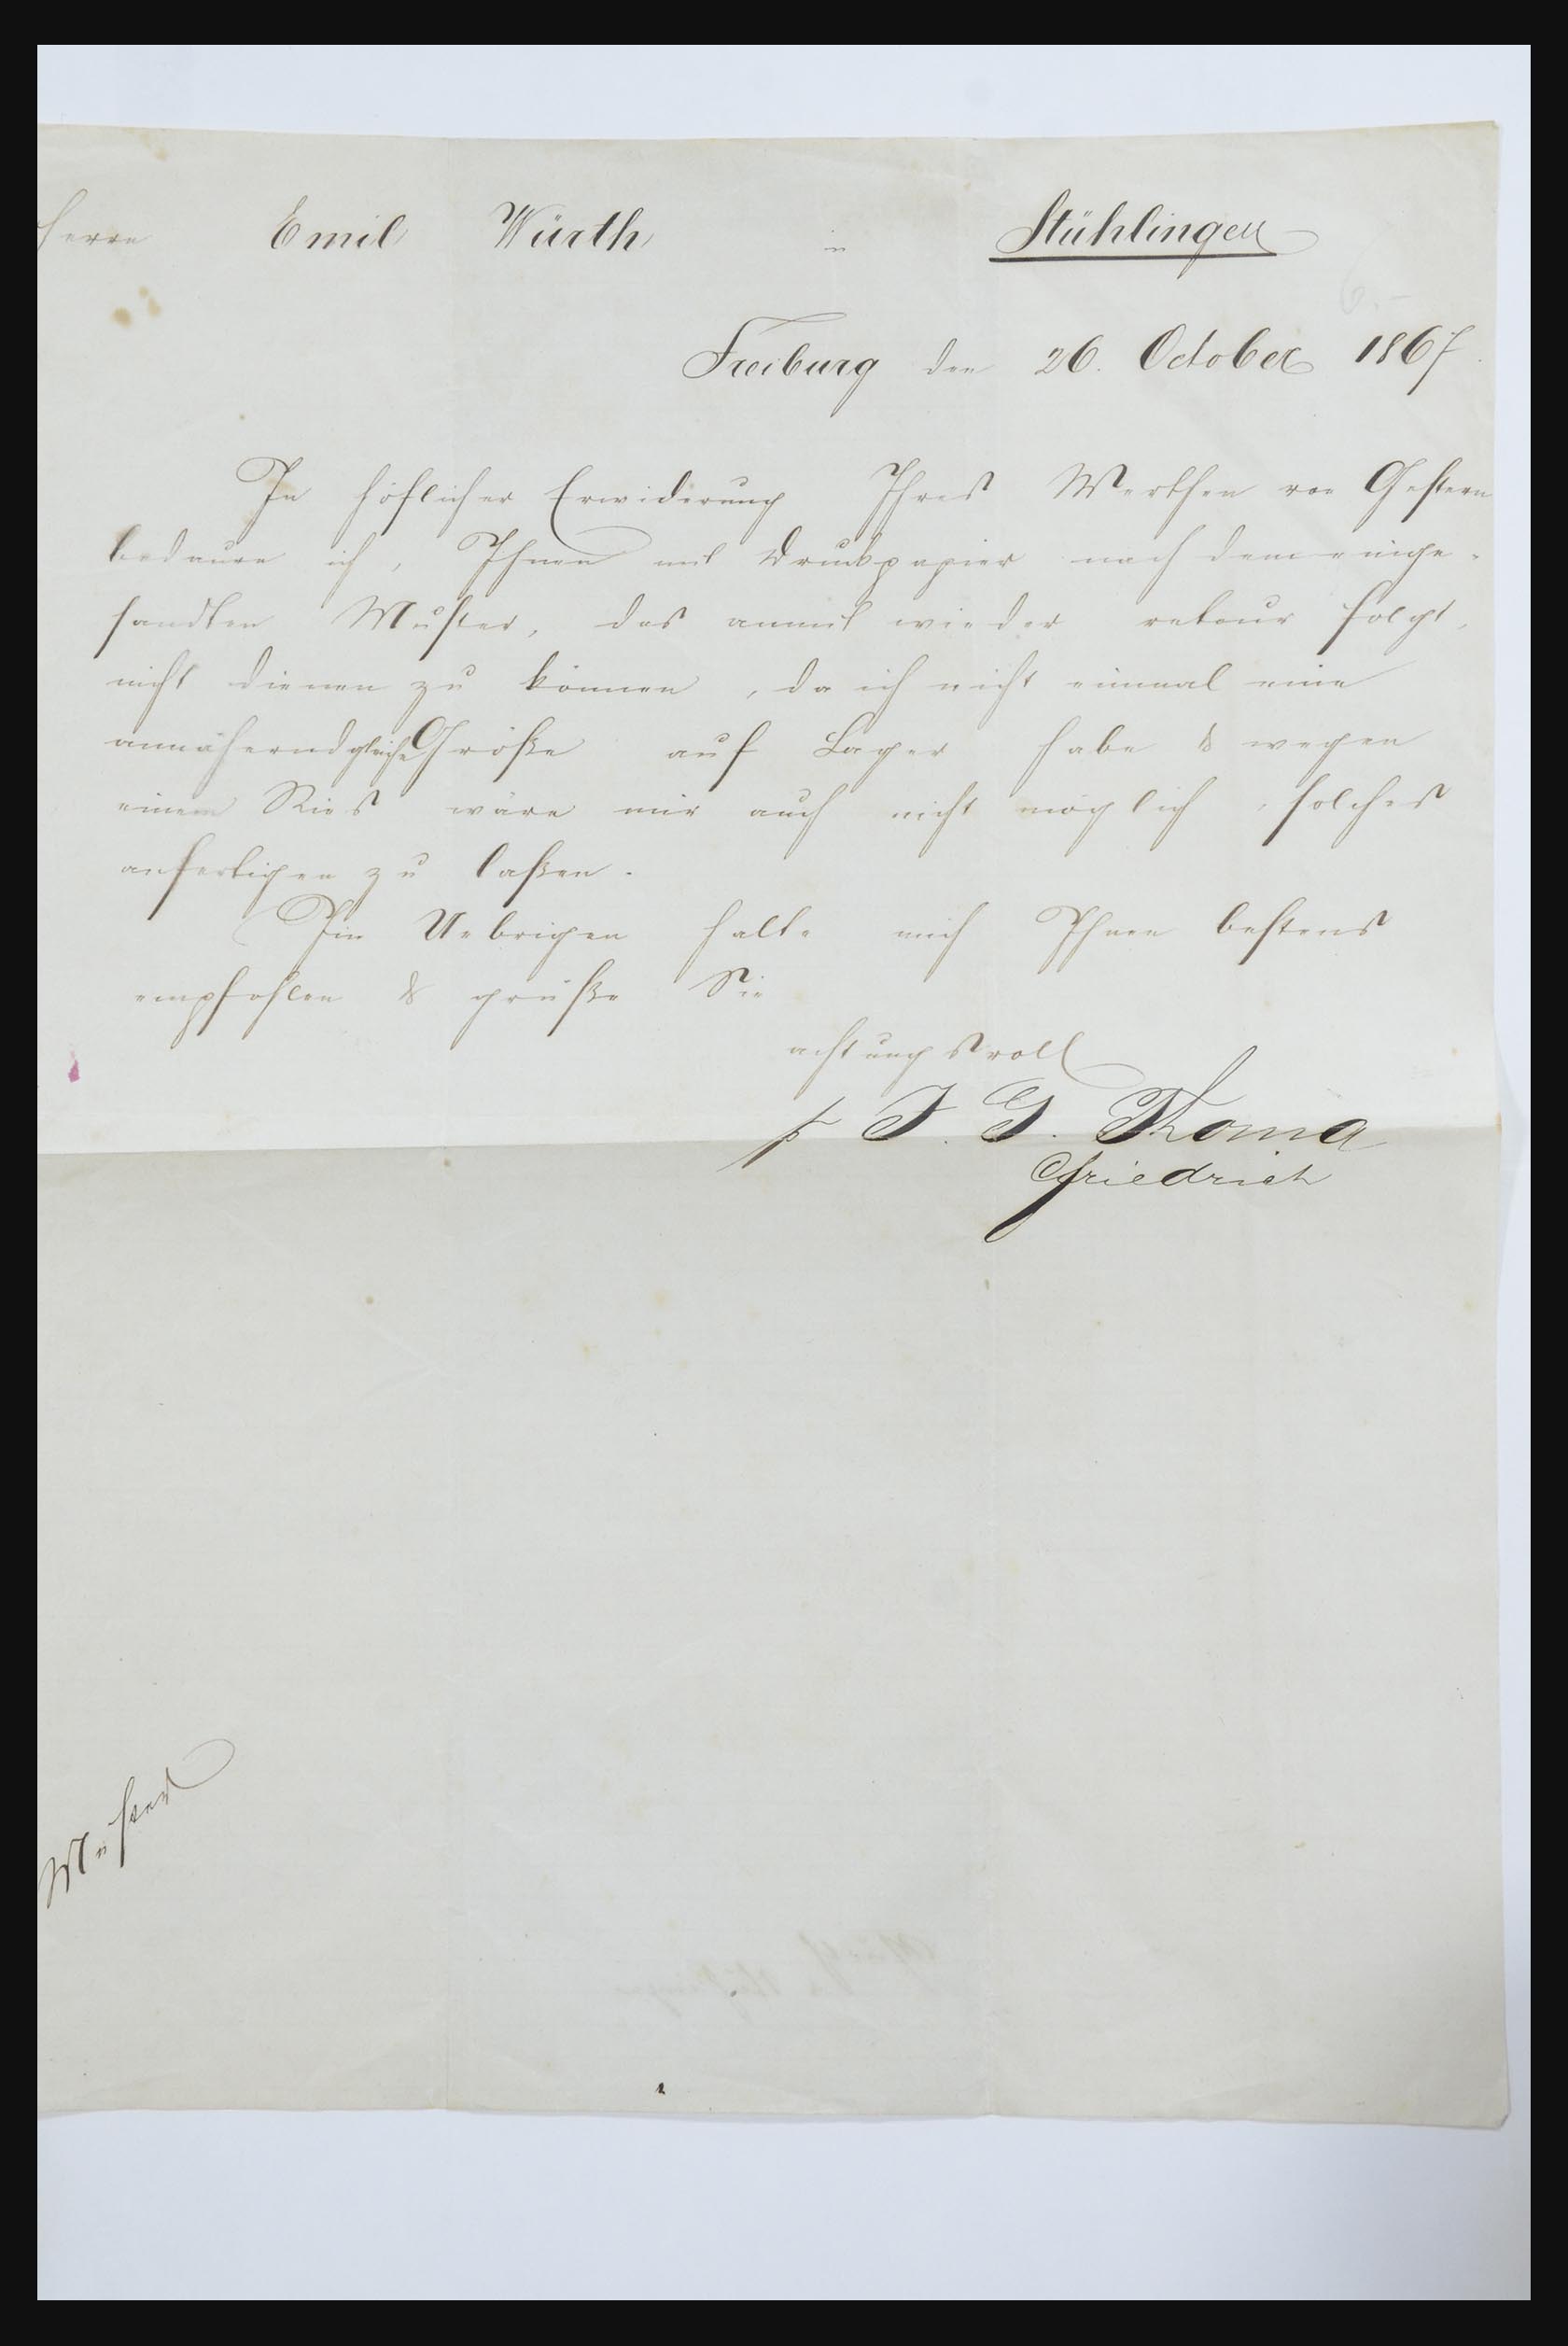 Herrn Emil Würth in Stühlingen
Freiburg den 26. October 1867.
In höflicher Erwiderung Ihres Werthen von Gestern
bedaure ich, Ihnen mit Druckpapier nach dem einge-
sandten Muster, das anmit wieder retour folgt,
nicht dienen zu können, da ich nicht einmal eine
annähernd gleiche Größe auf Lager habe & wegen
einem Ries wäre mir auch nicht möglich, solches
anfertigen zu laßen.
Im Uebrigen halte mich Ihnen bestens
empfohlen & grüße Sie
achtungsvoll
p J. G. Thoma
Friedrich
Muster